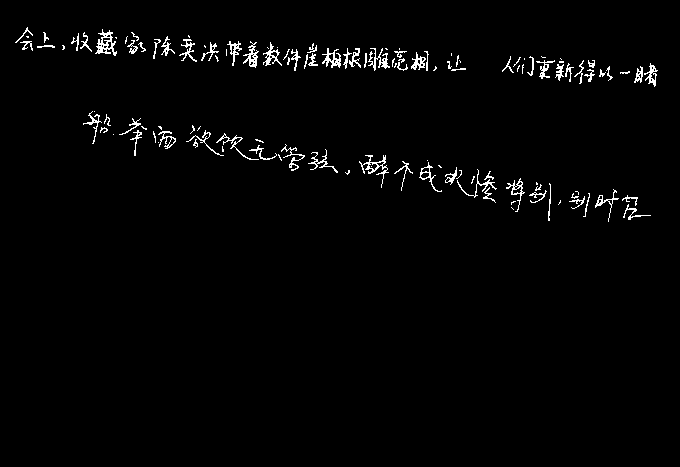 会上，收藏家陈奕洪带着数件崖柏根雕亮相，让 人们重新得以一睹
船举酒欲饮无管弦，醉不成欢惨将别，别时茫